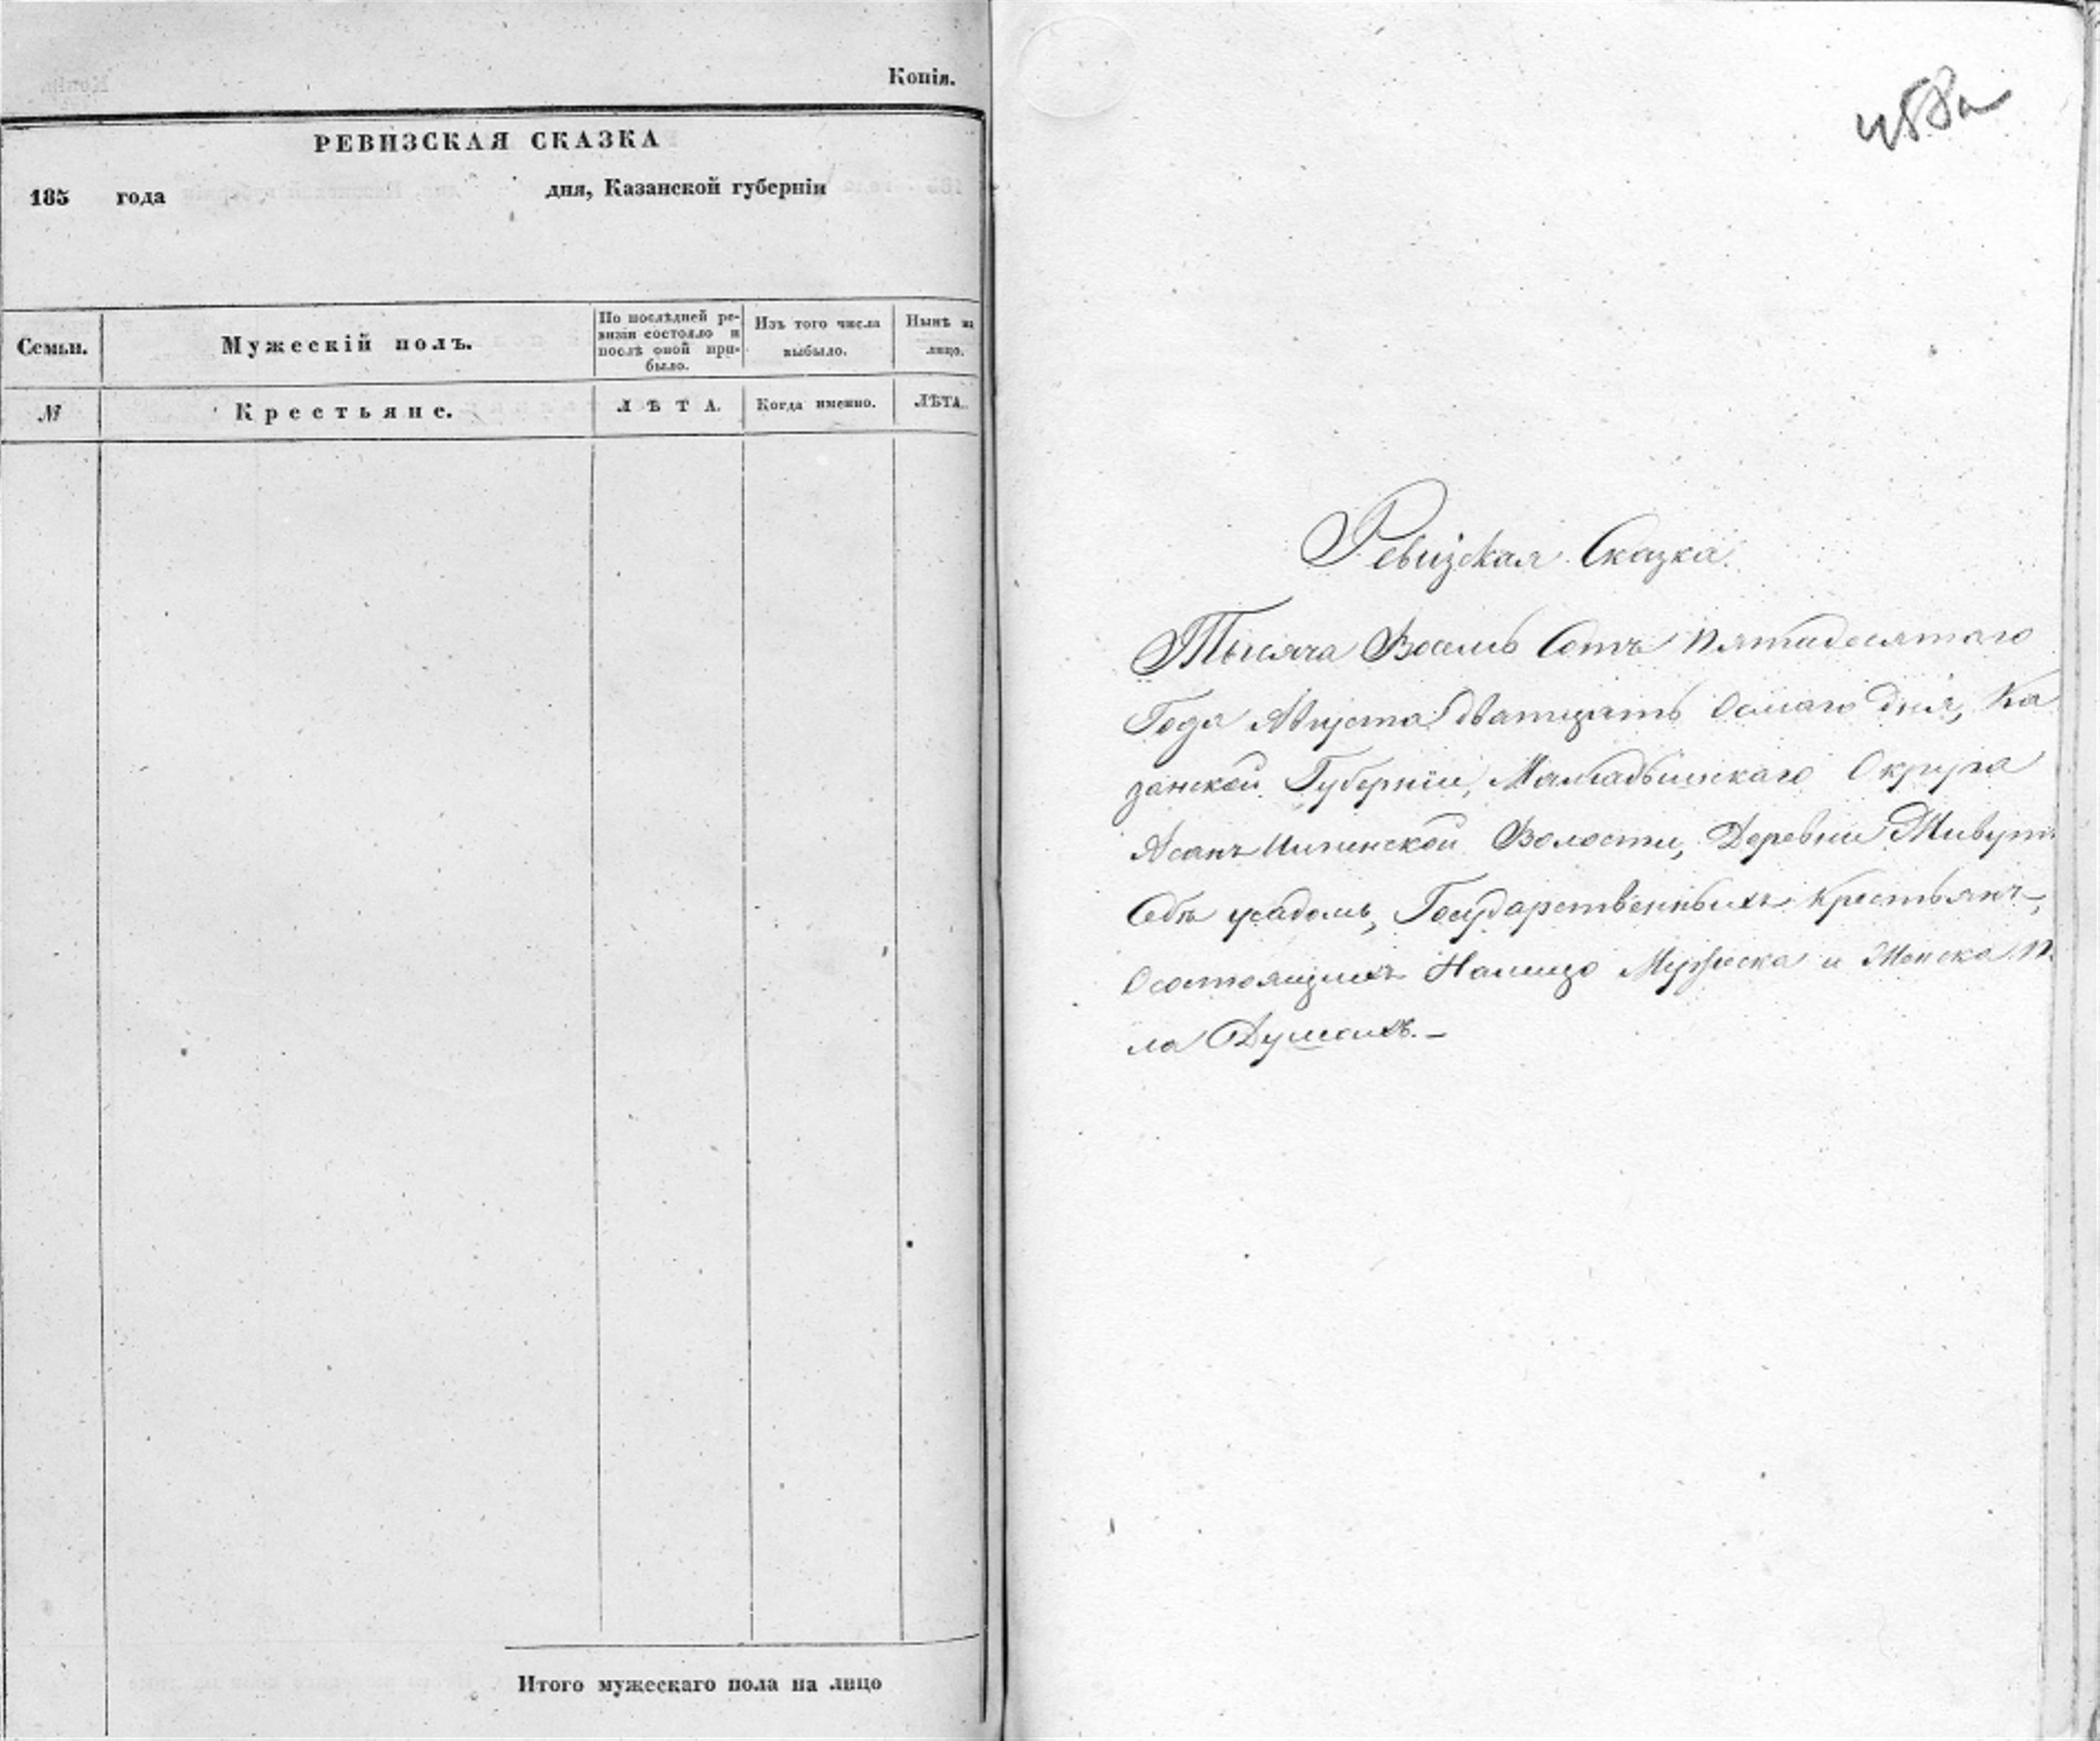 Копія.
РЕВИЗСКАЯ СКАЗКА
185 года дня, Казанской губерніи
Семьи.
Мужескій полъ.
По послѣдней ре-
визіи состояло и
послѣ оной при-
было.
Изъ того числа
выбыло.
Нынѣ на
лицо.
№
Крестьяне.
ЛѢТА.
Когда именно.
ЛѢТА.
Итого мужескаго пола на лицо
458а
Ревизская Сказка.
Тысяча Восемь Сотъ Пятидесятаго
Года Августа дватцать осмаго дня, Ка
занской Губерніи, Мамадышскаго Округа
Волости, Деревни
Государственныхъ крестьянъ,
О состоящихъ Налицо Мужеска и Женска П
ла Душахъ.-